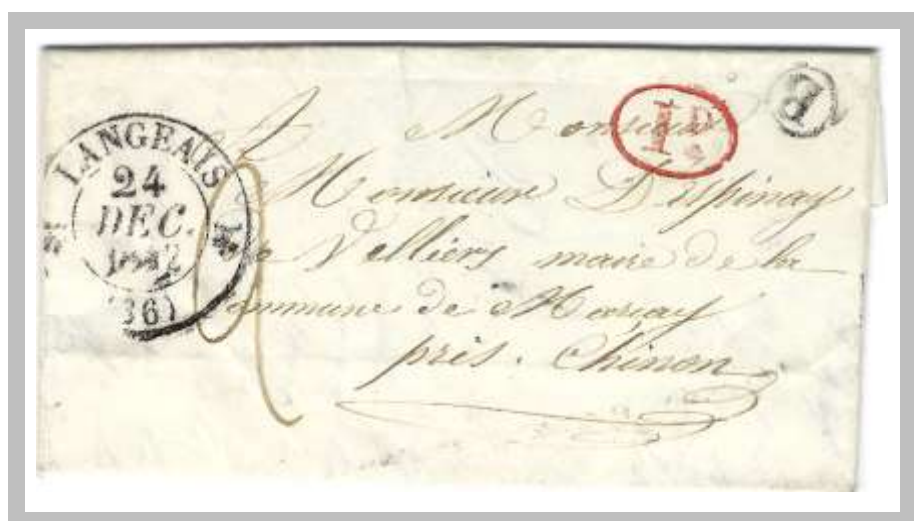 LANGEAIS
24
DEC.
1842
(36)
1D
B
A Monsieur
Monsieur D'Espinay
de Velliers maire de la
Commune de Marçay
près. Chinon